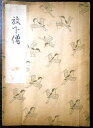 放下僧